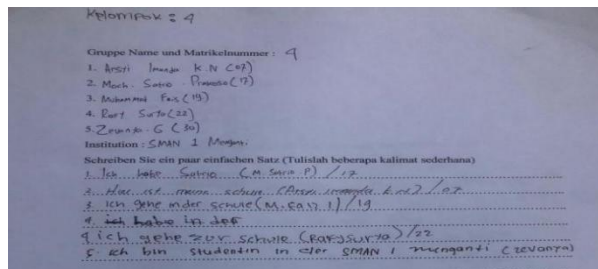 Kelompok : 4
Gruppe Name und Matrikelnummer : 4
1. Arsti Imanda K.N (07)
2. Moch. Satrio Prabowo (17)
3. Muhammad Fais (19)
4. (22)
5. G (30)
Institution : SMAN 1
Schreiben Sie ein paar einfachen Satz (Tulislah beberapa kalimat sederhana)
1. Ich habe (M. Satrio P) / 17
2. Hier ist meine schule / 07
3. Ich gehe in der schule (M. Fais) / 19
4. ich habe in der
4 ich gehe zur schule / 22
5. ich bin studentin in der SMAN 1 menganti